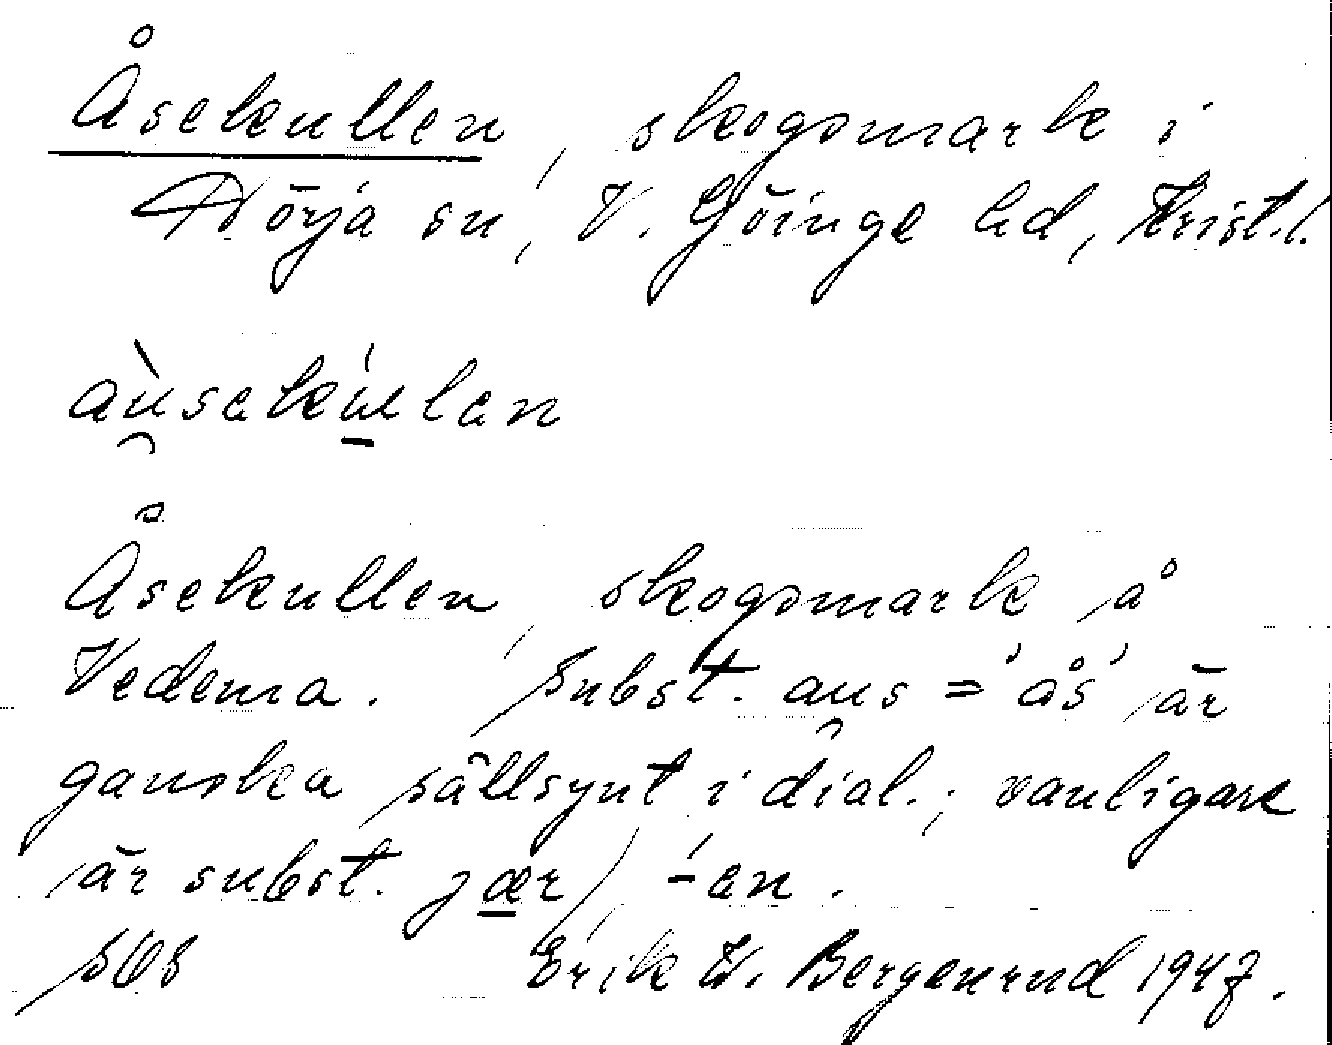 Åsekullen, skogsmark i
Nörja sn, V. Göinge hd, Krist.l.
àu̯sekúlen
Åsekullen, skogsmark å
Vedema. Subst. au̯s = 'ås' är
ganska sällsynt i dial.; vanligare
är subst. jær), -en.
Erik W. Bergenrud 1947.